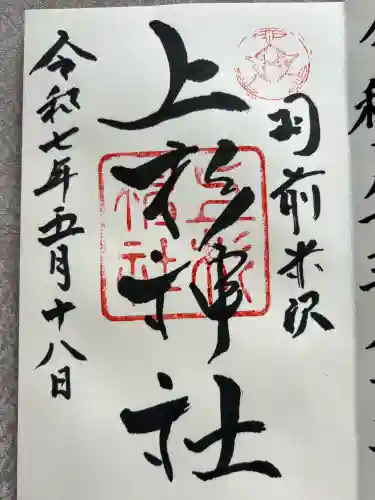 羽前米沢
上杉神社
令和七年五月十八日